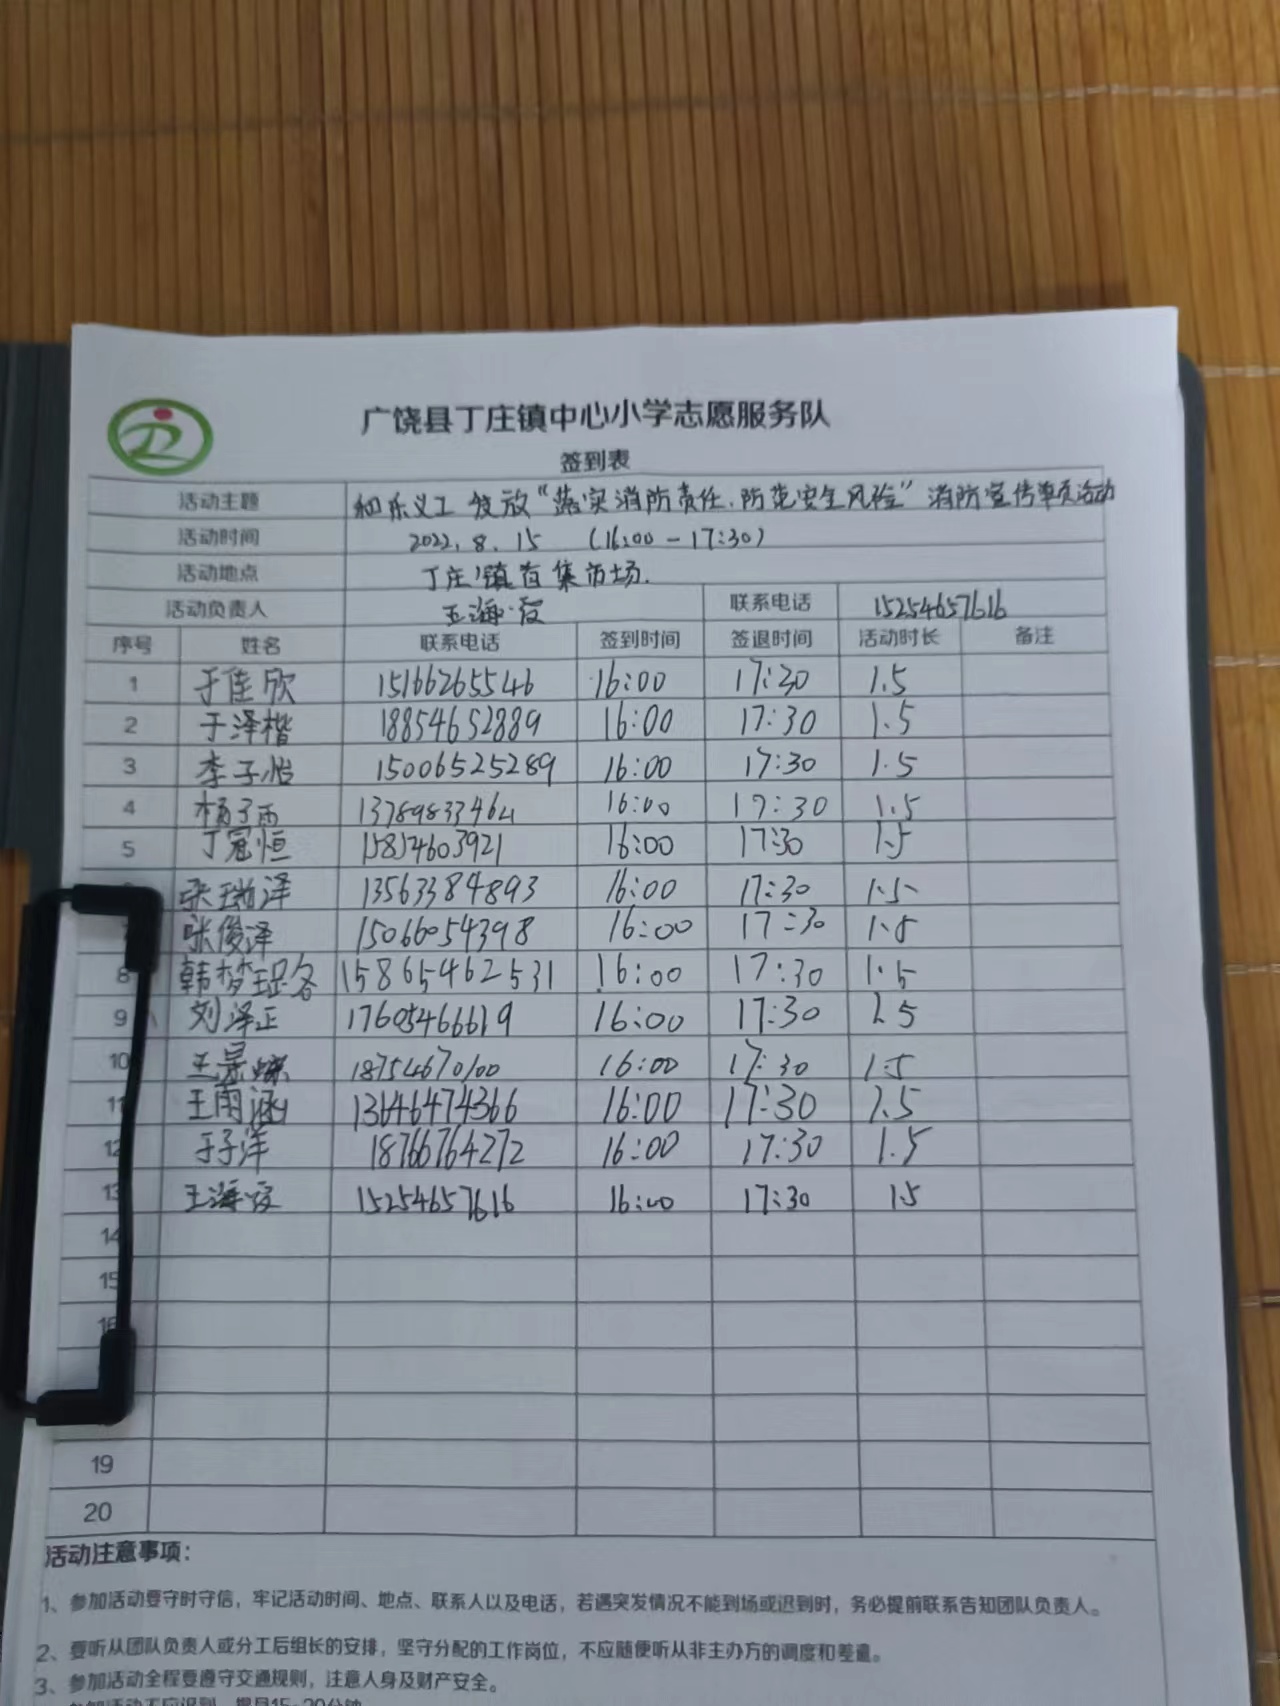 广饶县丁庄镇中心小学志愿服务队
签到表
活动主题 和乐义工 发放“落实消防责任.防范安全风险”消防宣传单页活动
活动时间 2022.8.15 (16:00-17:30)
活动地点 丁庄镇百集市场.
活动负责人 王海霞 联系电话 15254657616
序号 姓名 联系电话 签到时间 签退时间 活动时长 备注
1 于佳欣 15166265546 16:00 17:30 1.5
2 于泽楷 18854652889 16:00 17:30 1.5
3 李子怡 15006525289 16:00 17:30 1.5
4 杨子雨 13789833464 16:00 17:30 1.5
5 丁冠恒 16:00 17:30 1.5
张瑞泽 13563384893 16:00 17:30 1.5
7 张俊泽 15066054398 16:00 17:30 1.5
8 韩梦 15865462531 16:00 17:30 1.5
9 刘泽正 17605466619 16:00 17:30 1.5
10 王景 18754670100 16:00 17:30 1.5
11 王雨涵 13646474366 16:00 17:30 1.5
12 于子洋 18766764272 16:00 17:30 1.5
13 王海霞 15254657616 16:00 17:30 1.5
14
15
16
19
20
活动注意事项：
1、参加活动要守时守信，牢记活动时间、地点、联系人以及电话，若遇突发情况不能到场或迟到时，务必提前联系告知团队负责人。
2、要听从团队负责人或分工后组长的安排，坚守分配的工作岗位，不应随便听从非主办方的调度和差遣。
3、参加活动全程要遵守交通规则，注意人身及财产安全。